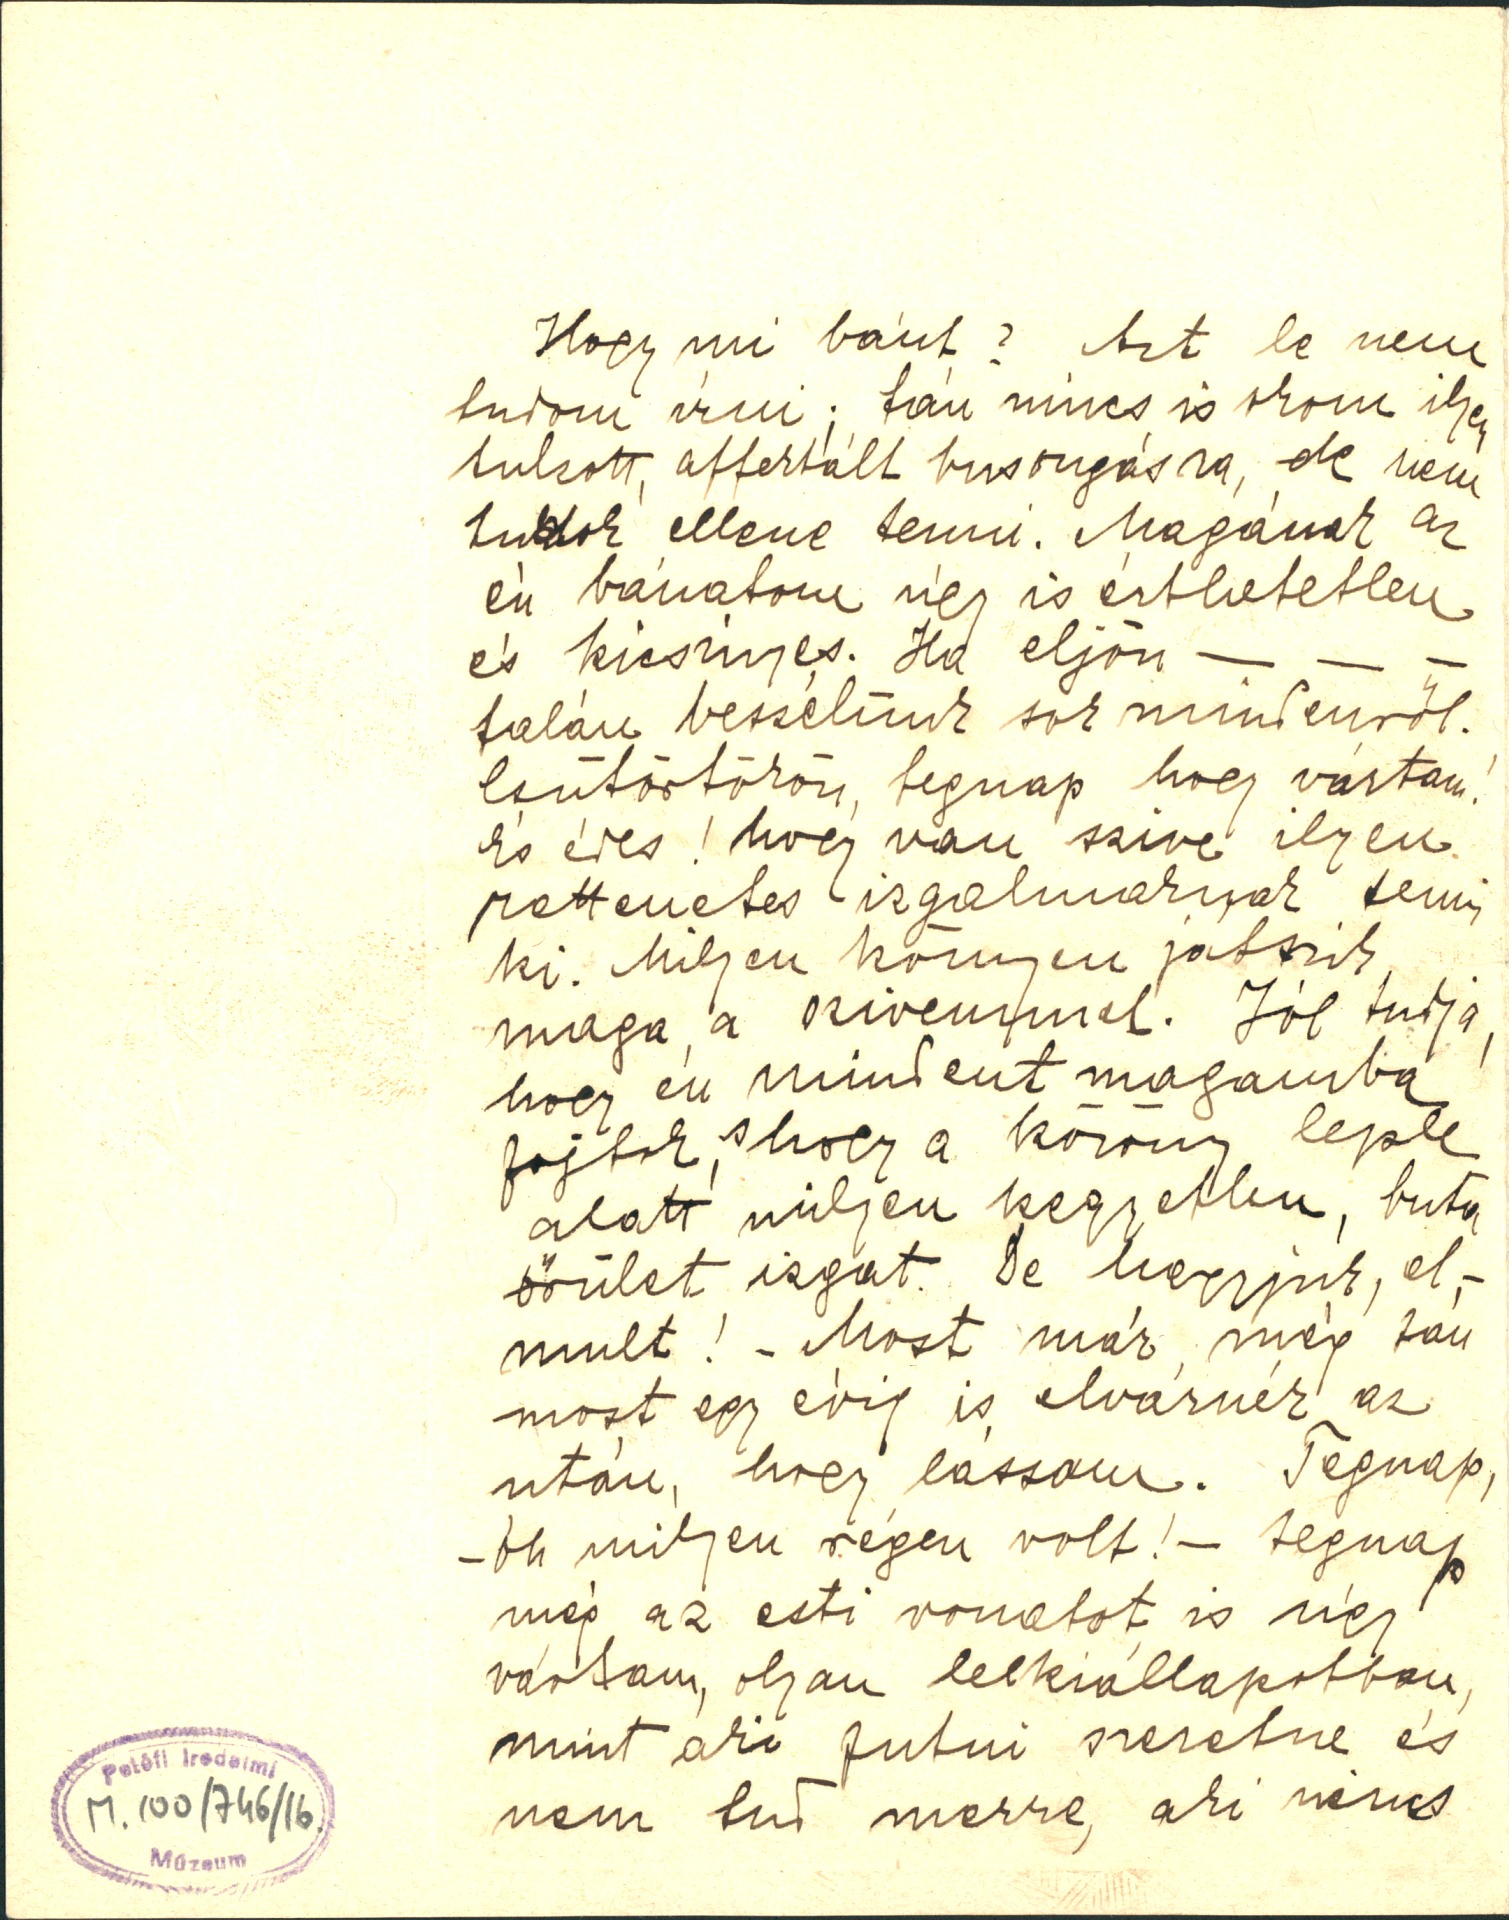 Hogy mi bánt? Azt le nem
tudom írni; tán nincs is okom ilyen
tulzott, affektált busongásra, de nem
tudok ellene tenni. Magának az
én bánatom úgy is érthetetlen
és kicsinyes. Ha eljön — — —
talán beszélünk sok mindenről.
Csütörtökön, tegnap hogy vártam!
És édes! hogy van szive ilyen
rettenetes izgalmaknak tenni
ki. Milyen könnyen játszik
maga a szivemmel. Jól tudja,
hogy én mindent magamba
fojtok, s hogy a közöny leple
alatt milyen kegyetlen, buta
őrület izgat. De hagyjuk, el-
mult! - Most már, még tán
most egy évig is elvárnék az
után, hogy lássam. Tegnap,
- óh milyen régen volt! - tegnap
még az esti vonatot is úgy
vártam, olyan lelkiállapotban,
mint aki futni szeretne és
nem tud merre, aki nincs
Petőfi Irodalmi
M. 100/746/16.
Múzeum